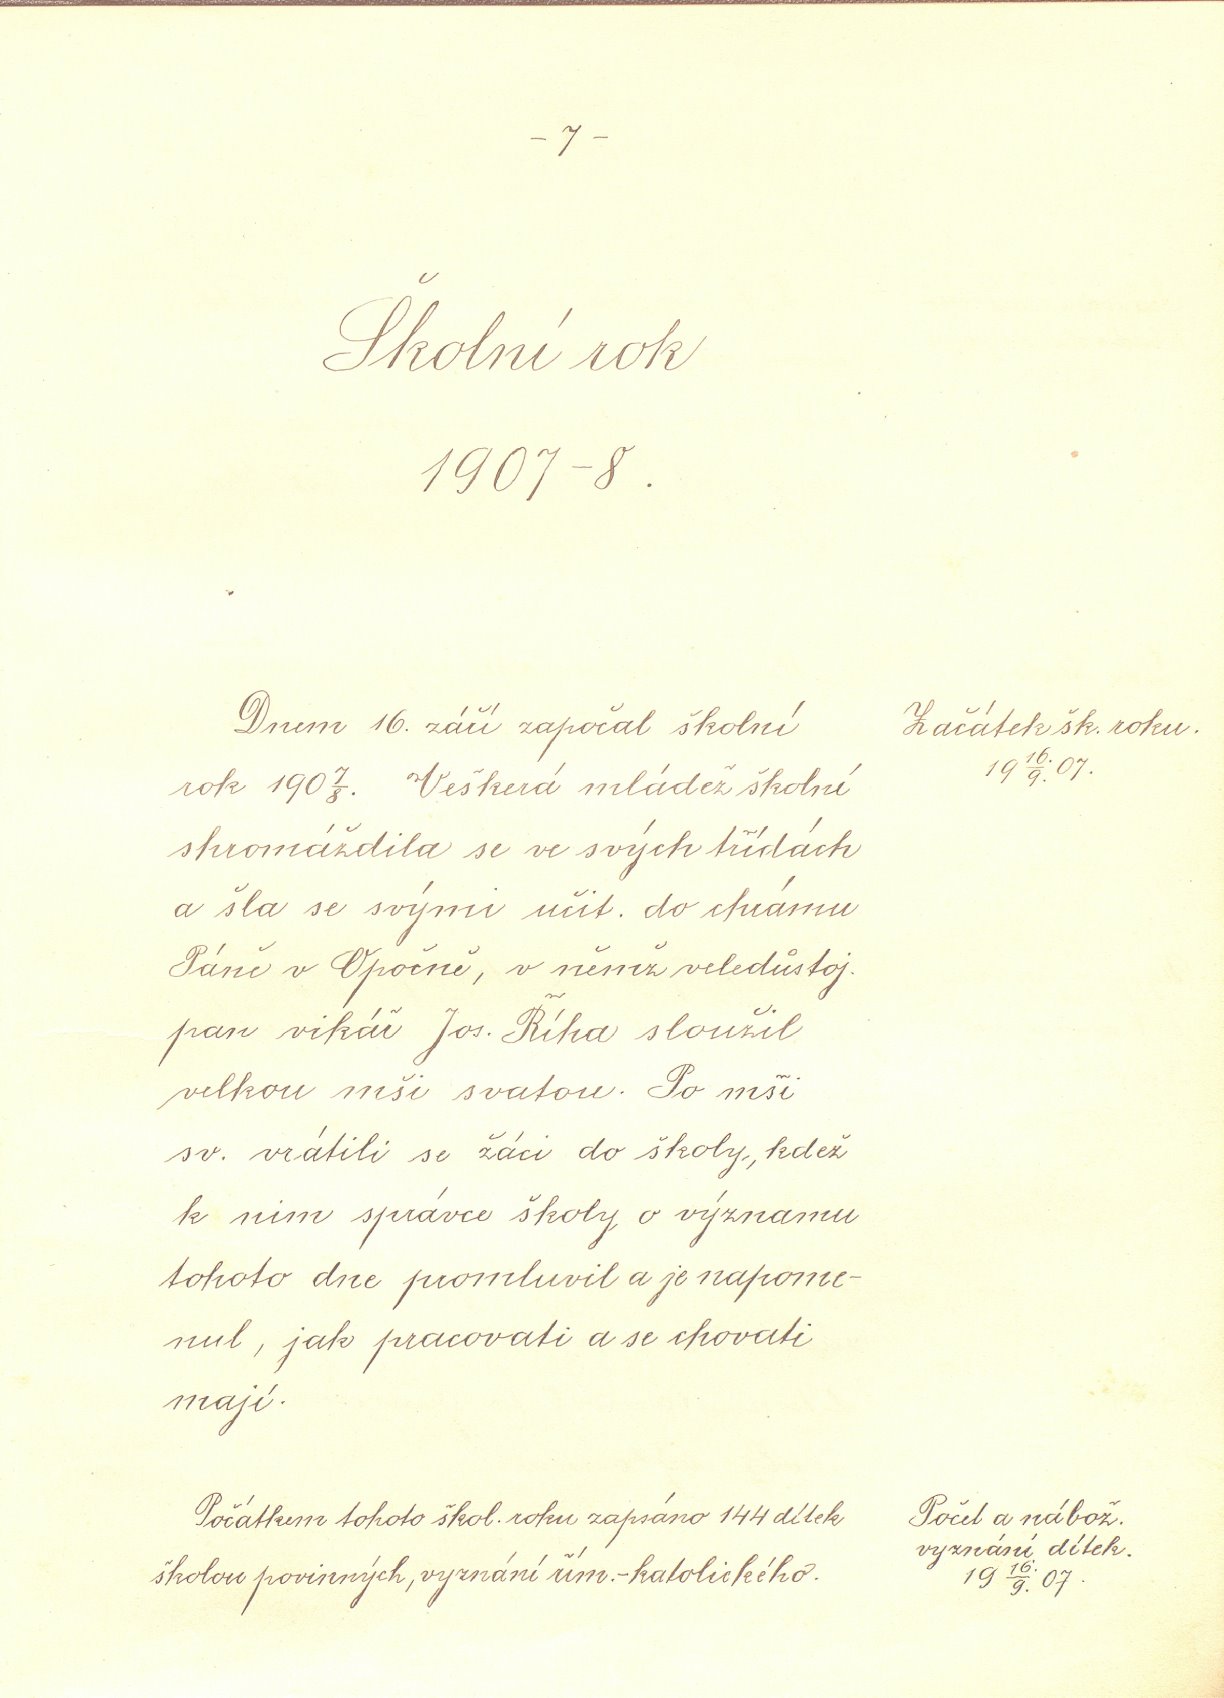 - 7 -
Školní rok
1907-8.
Dnem 16. září započal školní
rok 190 7/8. Veškerá mládež školní
shromáždila se ve svých třídách
a šla se svými učit. do chrámu
Páně v Opočně, v němž veledůstoj.
pan vikář Jos. Říha sloužil
velkou mši svatou. Po mši
sv. vrátili se žáci do školy, kdež
k nim správce školy o významu
tohoto dne promluvil a je napome-
nul, jak pracovati a se chovati
mají.
Začátek šk. roku.
19 16./9. 07.
Počátkem tohoto škol. roku zapsáno 144 dítek
školou povinných, vyznání řím.-katolického.
Počet a nábož.
vyznání dítek.
19 16./9. 07.